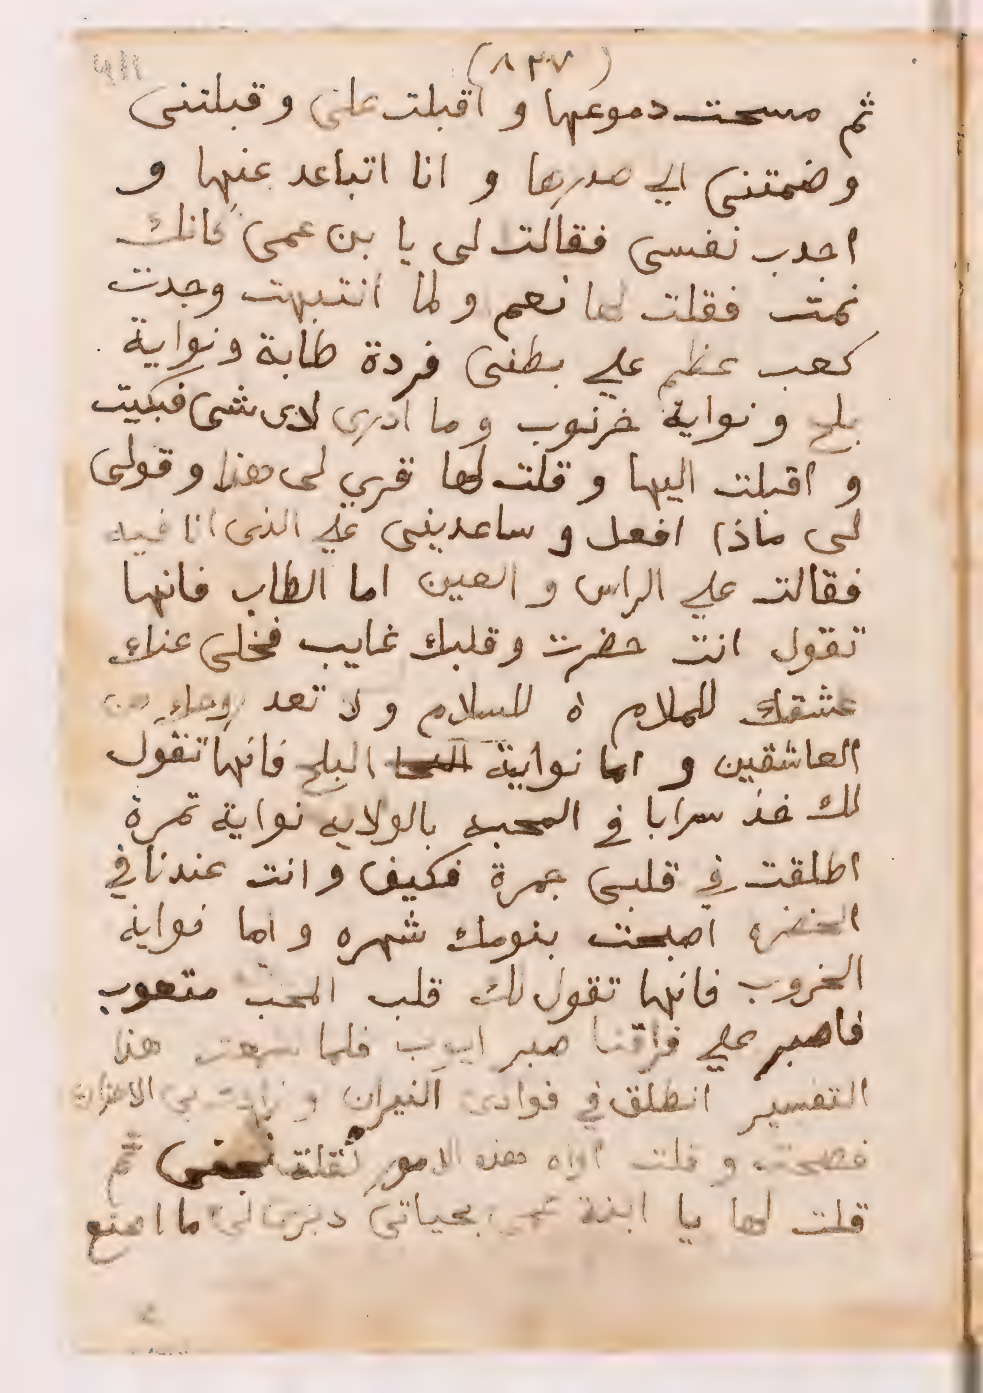 (٨٣٧)
ثم مسحت دموعها و اقبلت علي و قبلتنى
و ضمتنى الي صدرها و انا اتباعد عنها و
اجدب نفسى فقالت لى يا بن عمى كانك
نمت فقلت لها نعم و لما انتبهت وجدت
كعب عظم علي بطنى فردة طابة و نواية
بلح و نواية خرنوب و ما ادرى لاى شى فبكيت
و اقبلت اليها و قلت لها فسري لى هذا و قولى
لى ماذا افعل و ساعدينى علي الذى انا فيه
فقالت علي الراس و العين اما الطاب فانها
تقول انت حضرت و قلبك غايب فخلى عنك
عشقك للملام ه للسلام و لا تعد روحك من
العاشقين و اما نواية البلح فانها تقول
لك خذ سرابا في المحبه بالولايه نواية تمرة
اطلقت في قلبى جمرة فكيف و انت عندنا في
الحضره اصبحت بنومك شهره و اما نواية
الخروب فانها تقول لك قلب المحب متعوب
فاصبر علي فراقنا صبر ايوب فلما سمعت هذا
التفسير انطلق في فوادى النيران و زادت بى الاحزان
فصحت و قلت اواه هذه الامور ثم
قلت لها يا ابنة عمى بحياتى دبرى لى ما اصنع